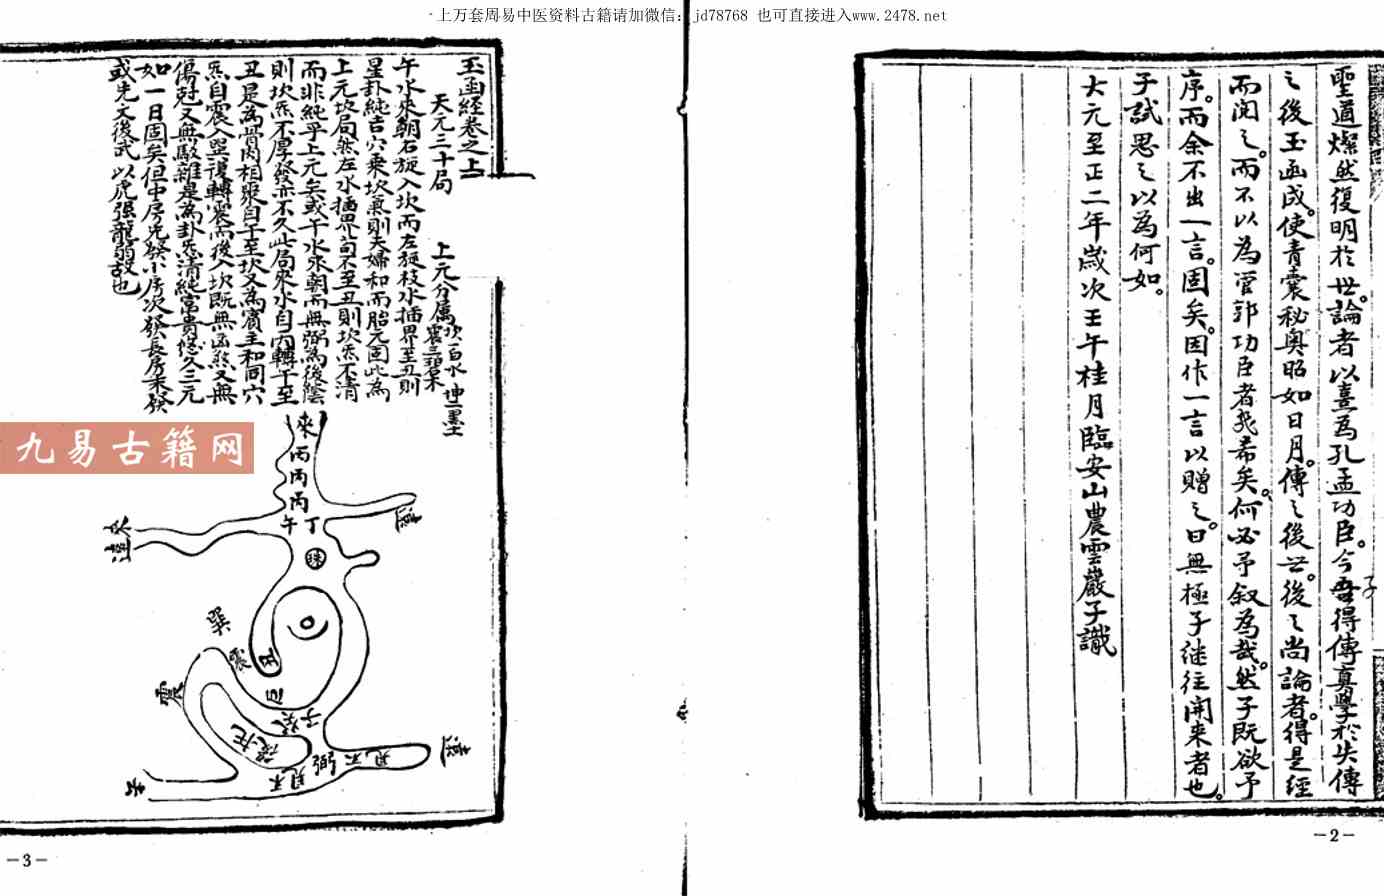 上万套周易中医资料古籍请加微信：jd78768 也可直接进入www.2478.net
聖道燦然復明於世。論者以熹為孔孟功臣。今吾子得傳真學於失傳
之後玉函成。使青囊秘奧昭如日月。傳之後世。後之尚論者。得是經
而閱之。而不以為管郭功臣者。幾希矣。何必予叙為哉。然子既欲予
序。而余不出一言。固矣。因作一言以贈之。曰無極子継往開来者也。
子試思之以為何如。
大元至正二年歲次壬午桂月臨安山農雲巖子識
-2-
玉函經卷之上
天元三十局
上元分属坎一白水 坤二墨土 震三碧木
午水來朝右旋入坎而左旋枝水插界至丑則
星卦純吉穴乘坎氣則夫婦和而胎元固此為
上元坎局然左水插界苟不至丑則坎炁不清
而非純乎上元矣或午水來朝而無弼為後蔭
則坎炁不厚發亦不久此局來水自丙轉午至
丑是為骨肉相聚自午至坎又為賓主和同穴
炁自震入巽復轉震而後入坎既無凶煞又無
傷尅又無駁雜是為卦炁清純富貴悠久三元
如一日固矣但中房先發小房次發長房末發
或先文後武以虎強龍弱故也
來
丙
丙
丙
午 丁
遠來
蕩
巽
震
震
丑
后
子癸
後托
弼
見不
見不
蕩
去
九易古籍网
-3-